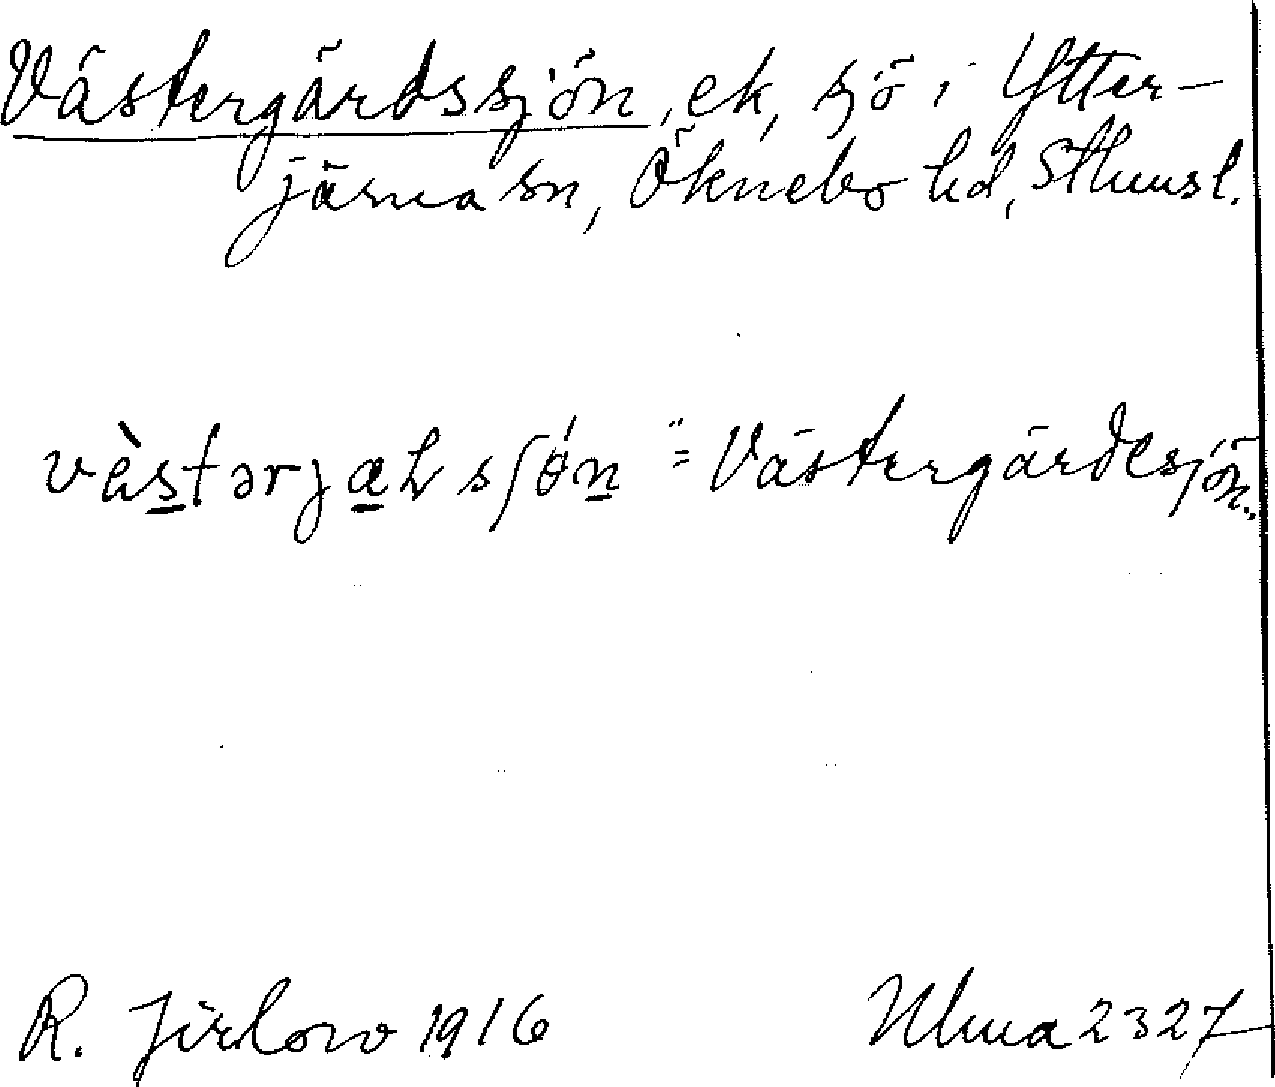 Västergärdssjön, ek, sjö i Ytter-
järna sn, Öknebo hd, Sthmsl.
"= Västergärdesjön"
R. Jirlow 1916 Ulma 2327